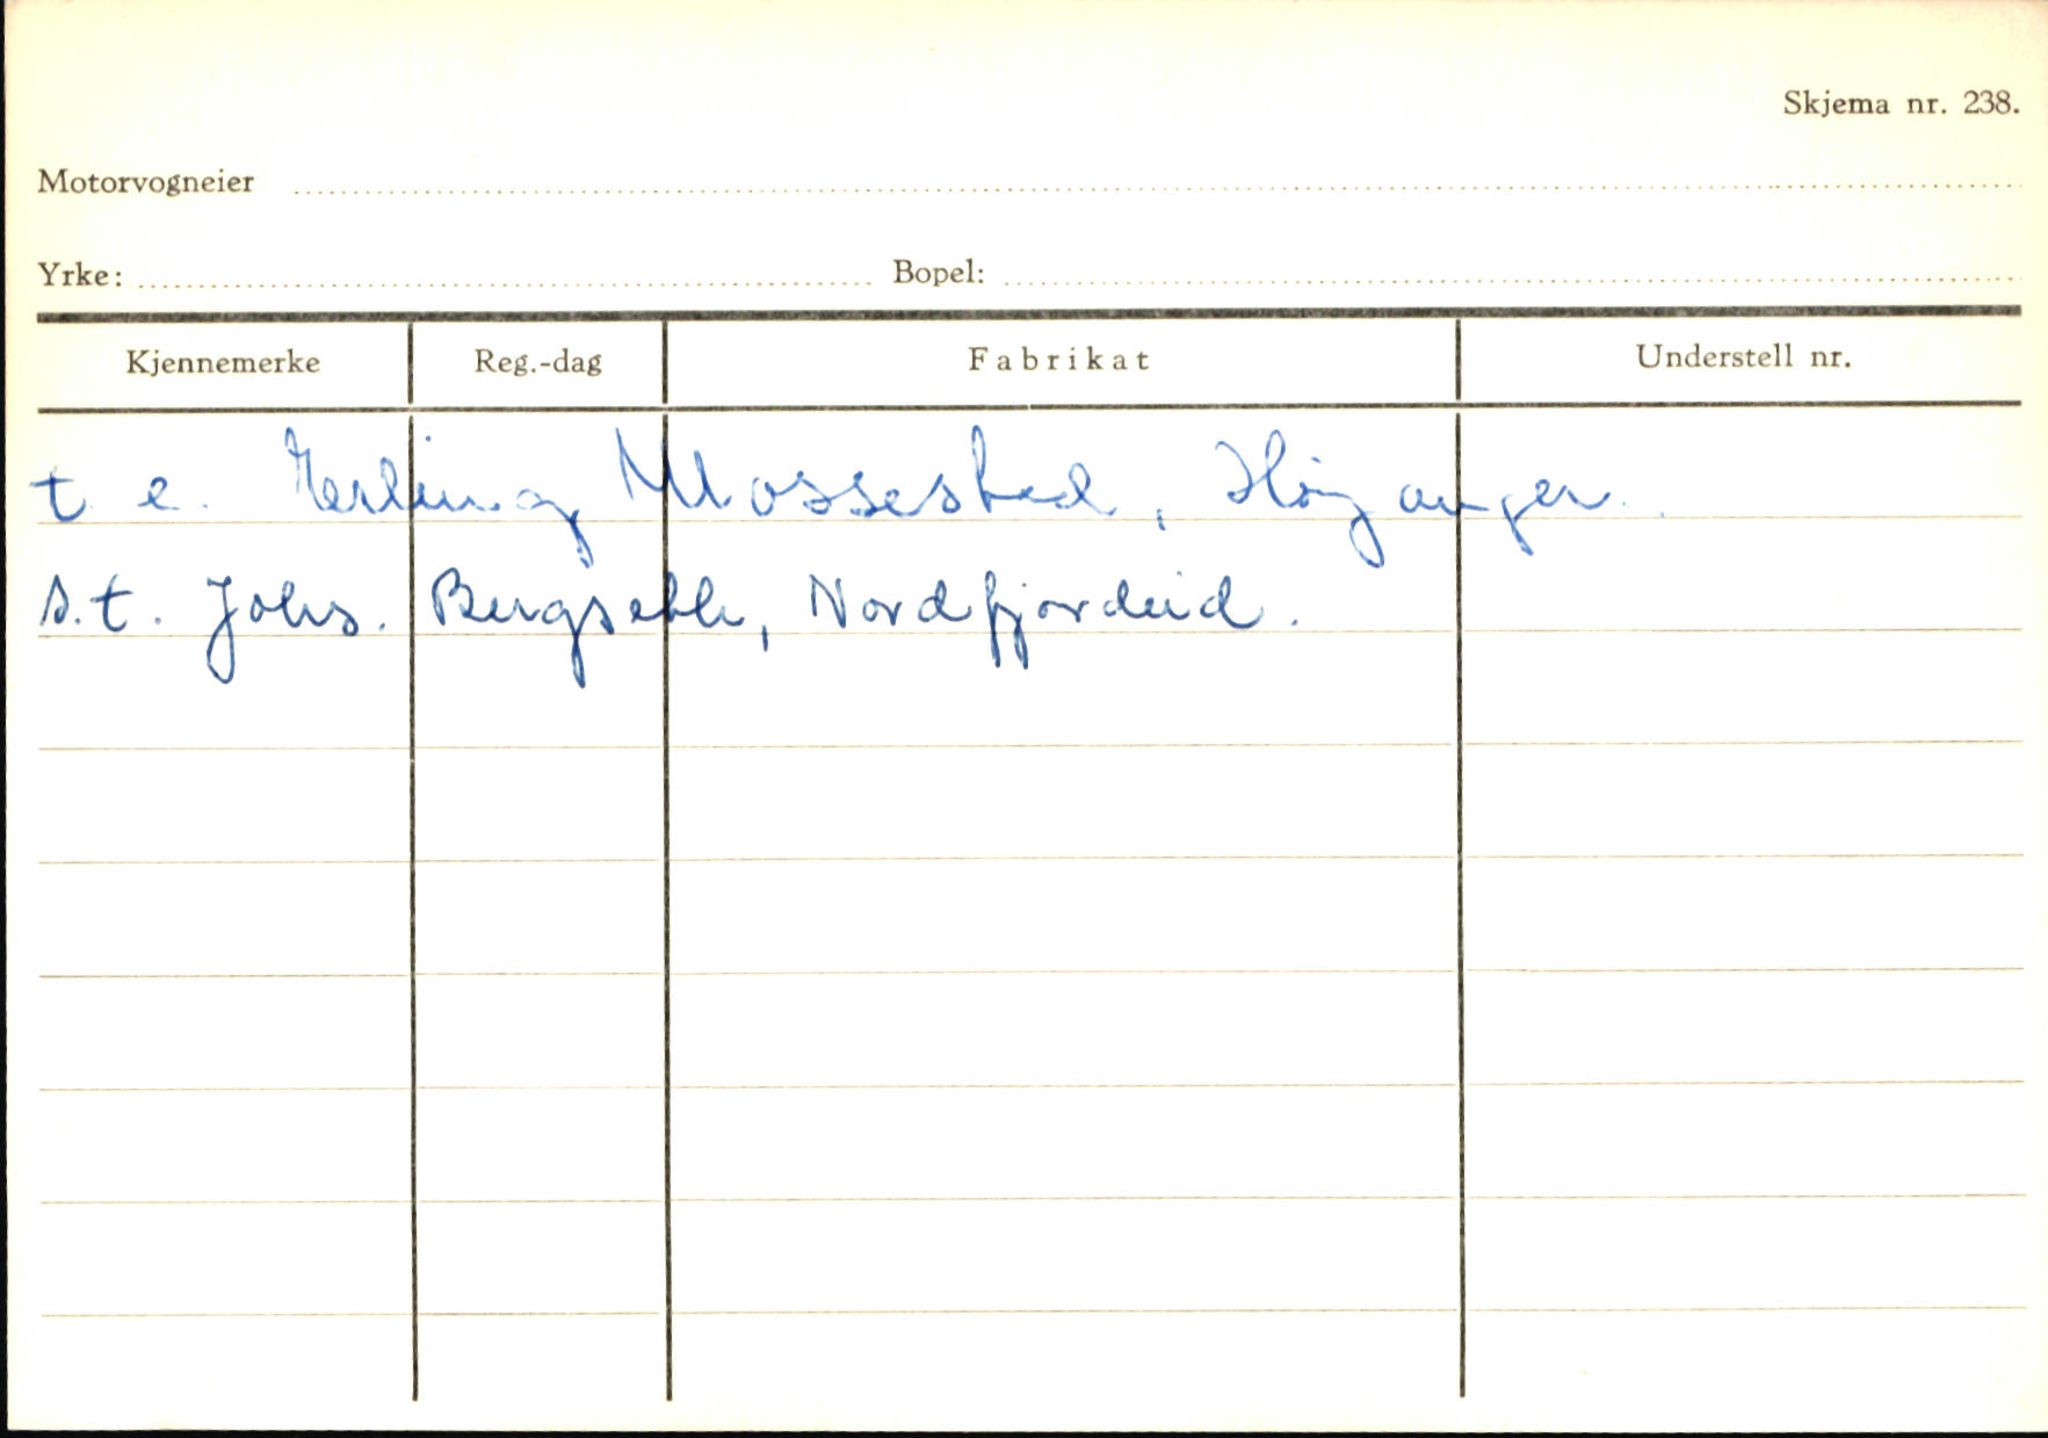 Skjema nr. 238.
Motorvogneier
Yrke: Bopel:
Kjennemerke Reg.-dag Fabrikat Understell nr.
t. e. Erling Mossestad, Høyanger.
s.t. Johs. Bergseth, Nordfjordeid.